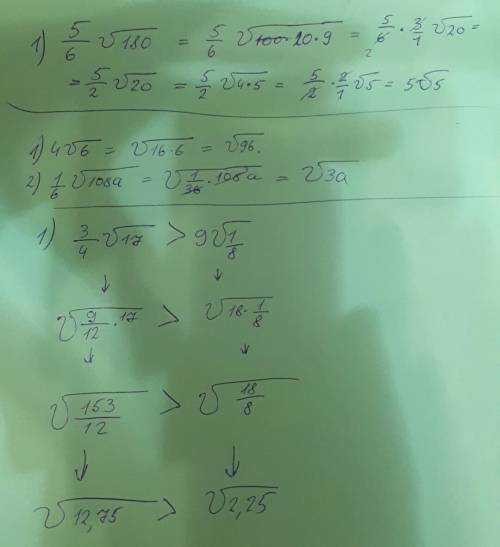 1) 5/6 √180 = 5/6 √(100·20·9) = 5/6 · 3/1 √20 =
2
= 5/2 √20 = 5/2 √(4·5) = 5/2 · 2/1 √5 = 5√5
1) 4√6 = √(16·6) = √96.
2) 1/6 √(108a) = √(1/36 · 108a) = √(3a)
1) 3/4 √17 > 9√(1/8)
↓ ↓
√(9/12 · 17) > √(18 · 1/8)
↓ ↓
√(153/12) > √(18/8)
↓ ↓
√12,75 > √2,25